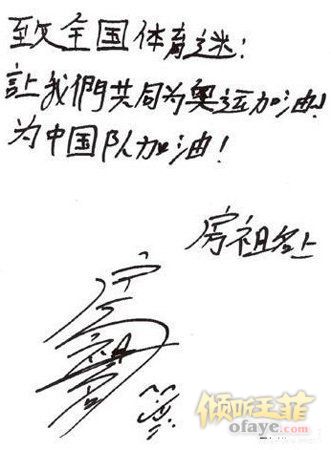 致全国体育迷：
让我們共同为奥运加油！
为中国队加油！
房祖名上
倾听王菲
ofaye.com